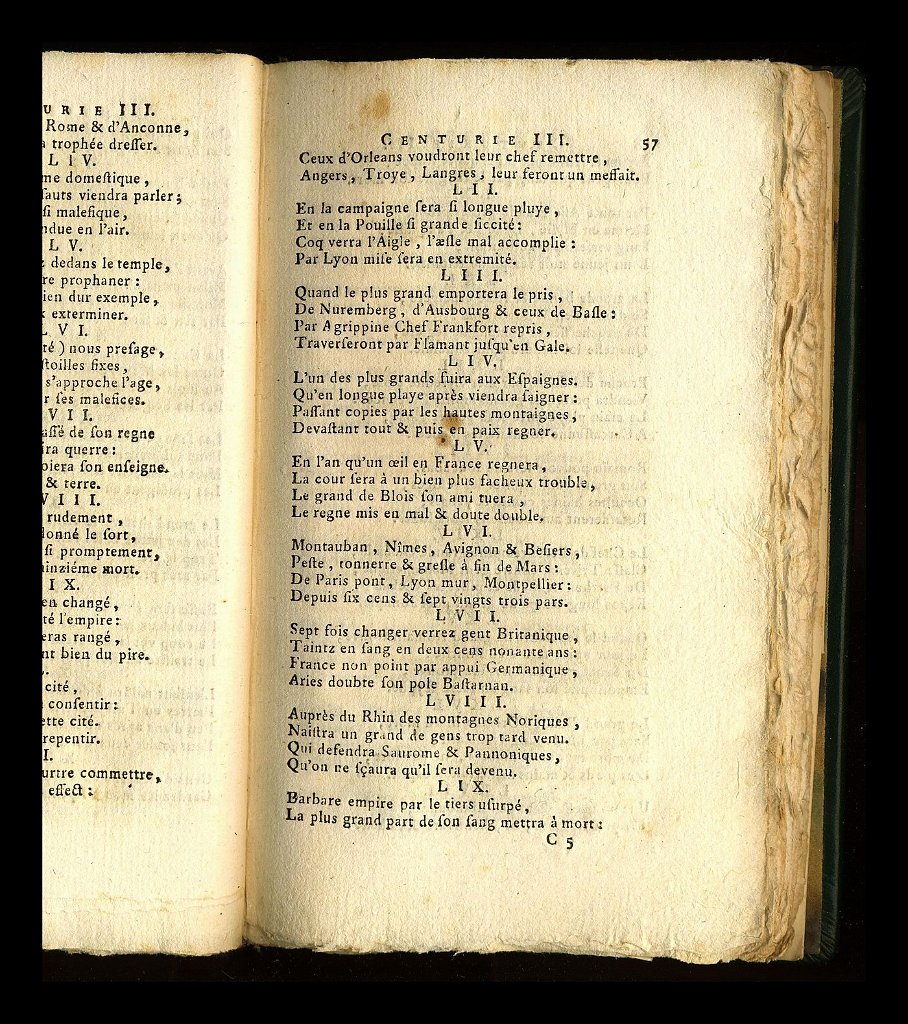 URIE III.
Rome & d'Anconne,
a trophée dreſſer.
LIV.
me domeſtique,
ſauts viendra parler;
ſi malefique,
ndue en l'air.
LV.
dedans le temple,
re prophaner :
ien dur exemple,
exterminer.
LVI.
té ) nous preſage,
ſtoilles fixes,
s'approche l'age,
r ſes malefices.
VII.
aſſé de ſon regne
ira querre :
oiera ſon enſeigne.
& terre.
VIII.
rudement,
lonné le ſort,
ſi promptement,
uinziéme mort.
IX.
en changé,
té l'empire :
eras rangé,
nt bien du pire.
cité,
conſentir :
ette cité.
repentir.
I.
urtre commettre,
effect :
CENTURIE III. 57
Ceux d'Orleans voudront leur chef remettre,
Angers, Troye, Langres, leur feront un meſſait.
LII.
En la campaigne ſera ſi longue pluye,
Et en la Pouille ſi grande ſiccité :
Coq verra l'Aigle, l'æſle mal accomplie :
Par Lyon miſe ſera en extremité.
LIII.
Quand le plus grand emportera le pris,
De Nuremberg, d'Ausbourg & ceux de Baſle :
Par Agrippine Chef Frankfort repris,
Traverſeront par Flamant juſqu'en Gale.
LIV.
L'un des plus grands fuira aux Eſpaignes.
Qu'en longue playe après viendra ſaigner :
Paſſant copies par les hautes montaignes,
Devaſtant tout & puis en paix regner.
LV.
En l'an qu'un œil en France regnera,
La cour ſera à un bien plus facheux trouble,
Le grand de Blois ſon ami tuera,
Le regne mis en mal & doute double.
LVI.
Montauban, Nîmes, Avignon & Beſiers,
Peſte, tonnerre & greſle à fin de Mars :
De Paris pont, Lyon mur, Montpellier :
Depuis ſix cens & ſept vingts trois pars.
LVII.
Sept fois changer verrez gent Britanique,
Taintz en ſang en deux cens nonante ans :
France non point par appui Germanique,
Aries doubte ſon pole Baſtarnan.
LVIII.
Auprès du Rhin des montagnes Noriques,
Naiſtra un grand de gens trop tard venu.
Qui defendra Saurome & Pannoniques,
Qu'on ne ſçaura qu'il ſera devenu.
LIX.
Barbare empire par le tiers uſurpé,
La plus grand part de ſon ſang mettra à mort :
C 5